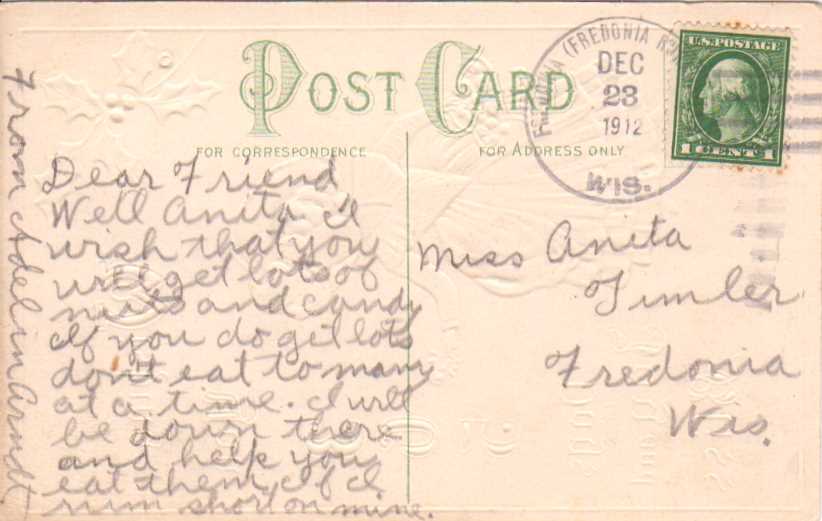 POST CARD
FOR CORRESPONDENCE
FOR ADDRESS ONLY
(FREDONIA
DEC
23
1912
WIS.
U.S. POSTAGE
1 CENT 1
Dear Friend
Well Anita. I
wish that you
will get lots of
nuts and candy
If you do get lots
dont eat to many
at a time. I will
be down there
and help you
eat them, if I
runn short on mine.
From Adelin Arndt
Miss Anita
Timler
Fredonia
Wis.